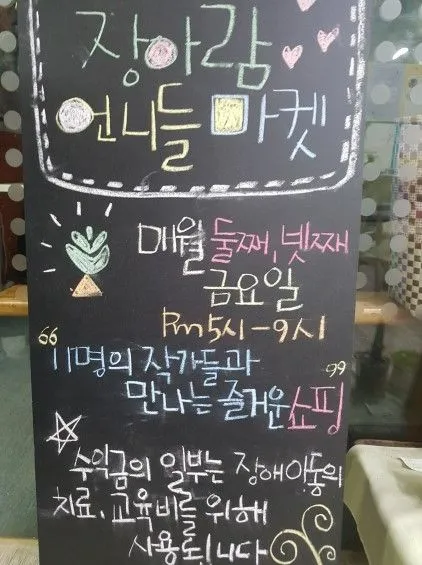 장아람
언니들 마켓
매월 둘째, 넷째
금요일
Pm 5시-9시
“11명의 작가들과
만나는 즐거운 쇼핑”
수익금의 일부는 장애아동의
치료, 교육비를 위해
사용됩니다